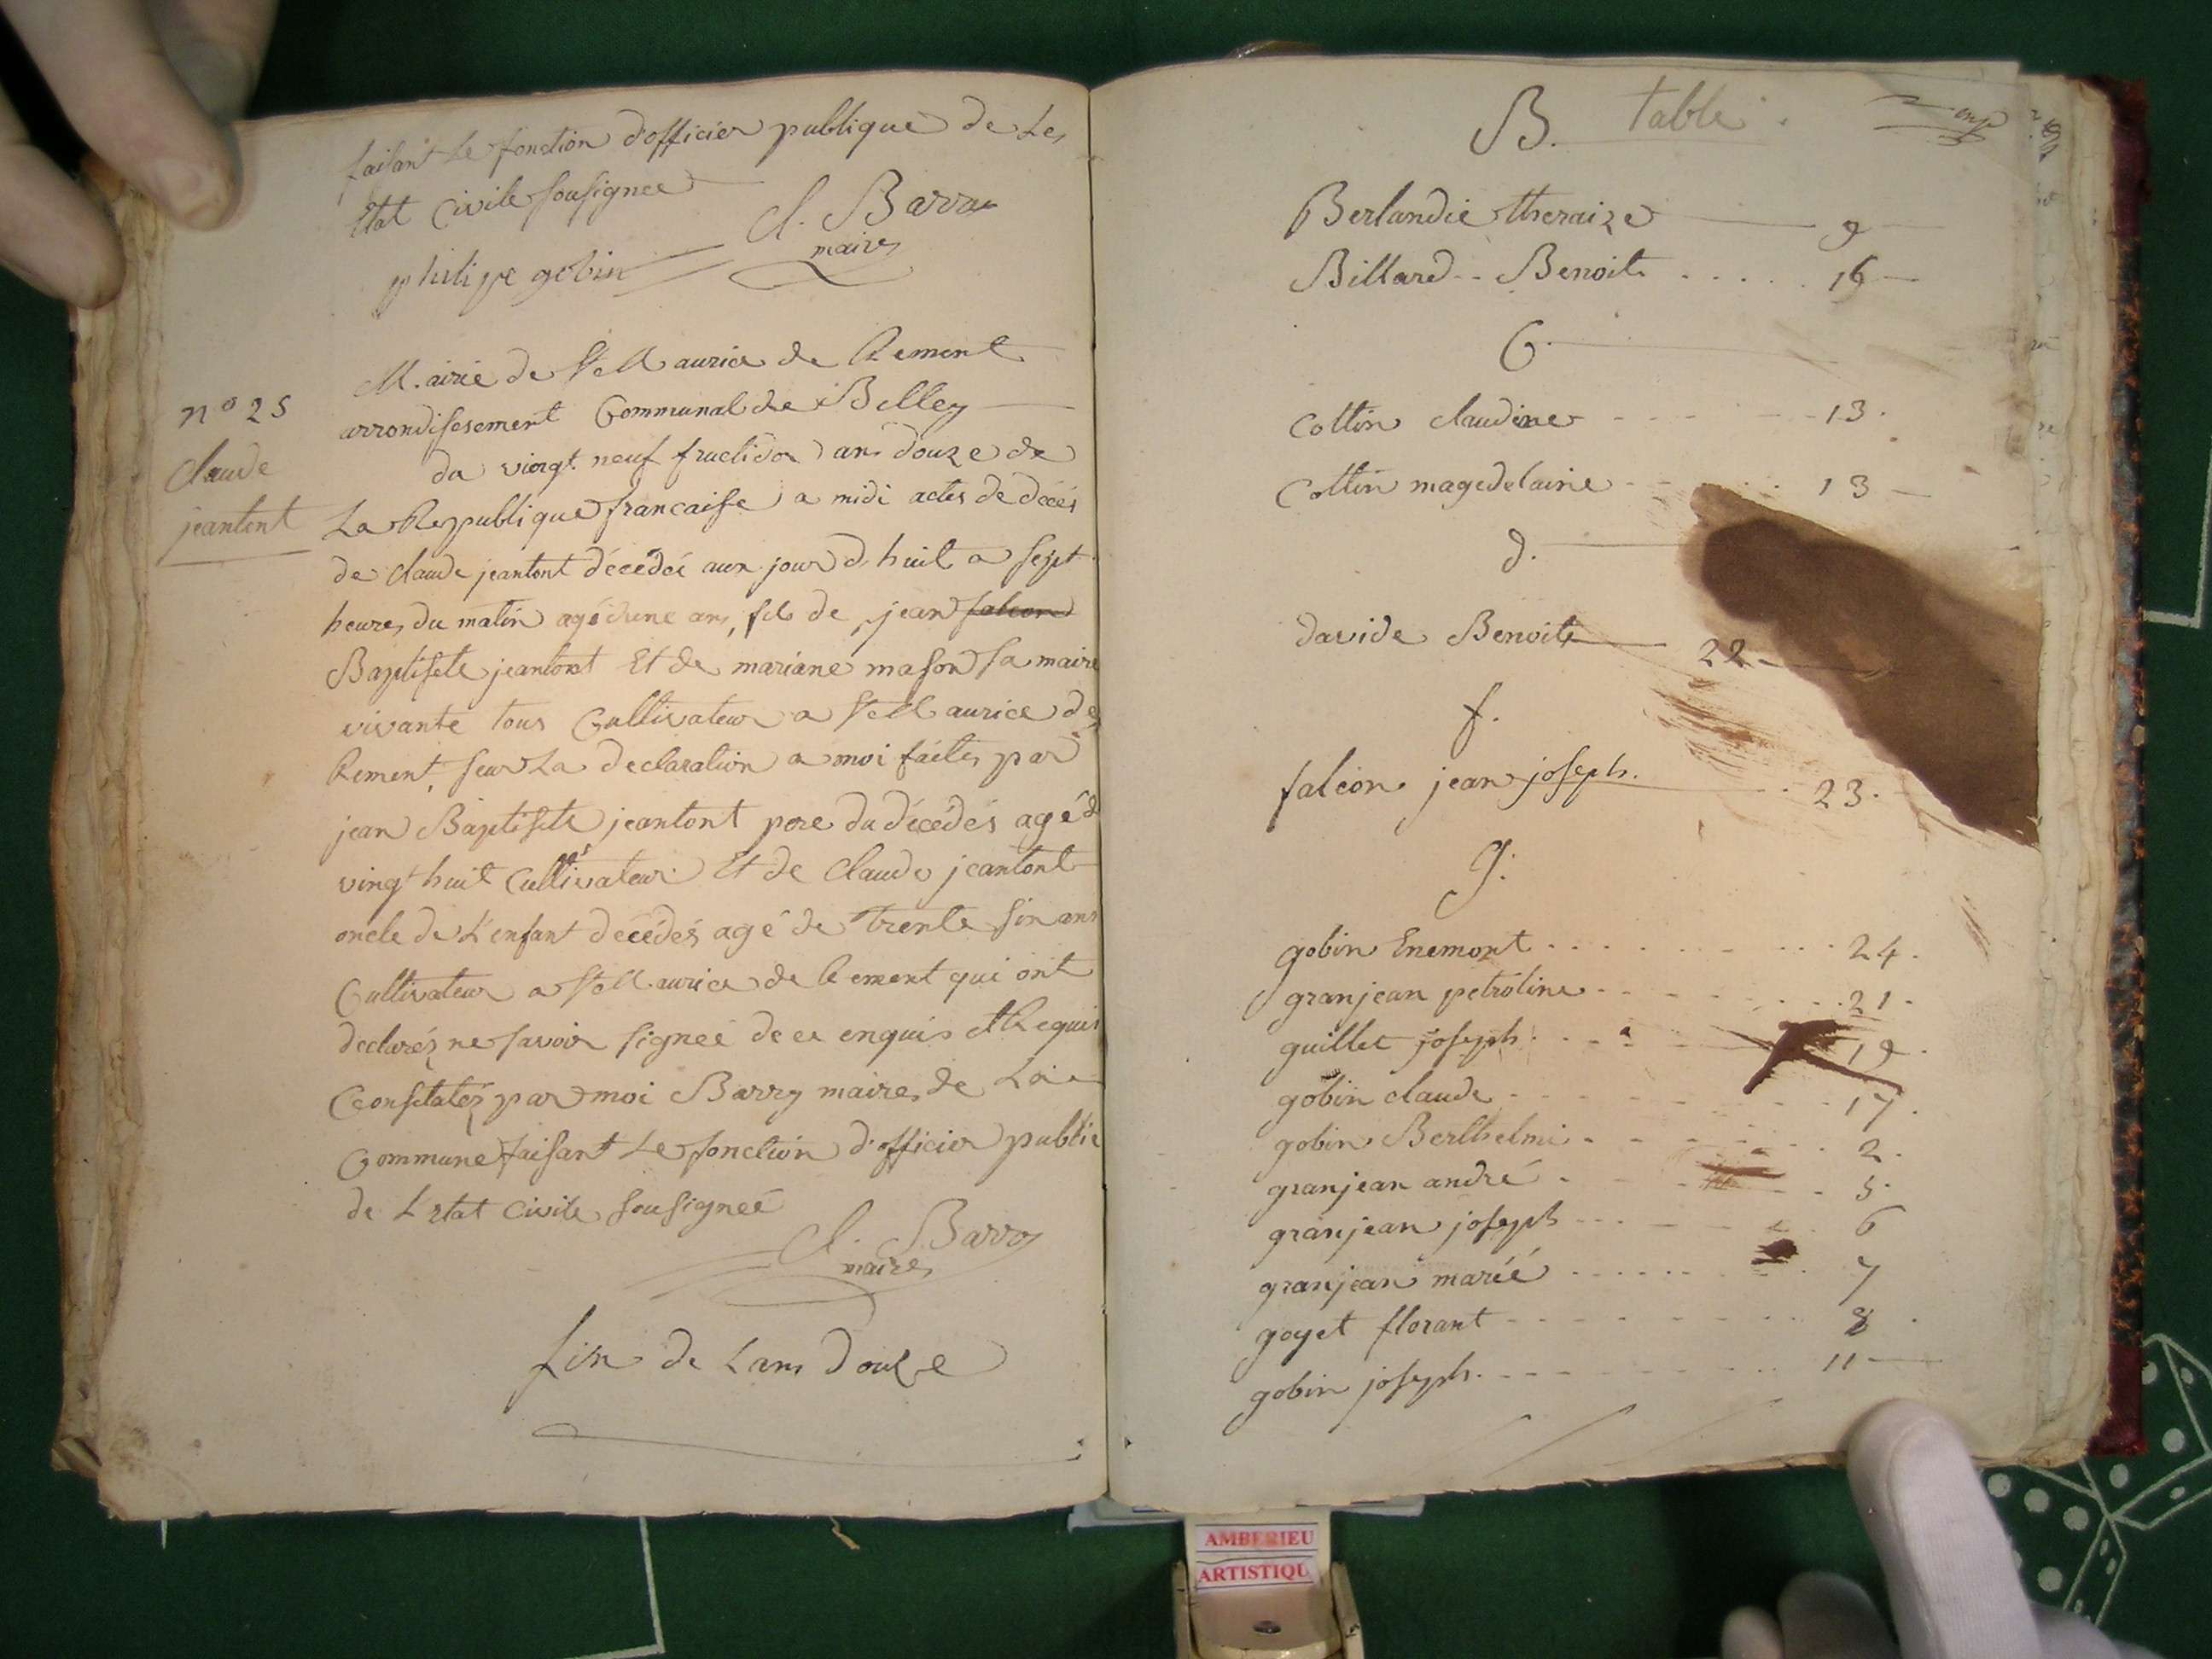 faisant Le fonction d'officier publique de Le,
Etat Civile sousignee
Cl. Barry
maire,
philipe gobin
M.airie de St Maurice de Rement
arrondissement Communal de Belley
n° 25
Claude
jeantont
du vingt neuf fructidor an douze de
La Republique francaisse a midi actes de décés
de claude jeantont décédéé aux jourd huit a sept
heures du matin agé dune ans, fils de jean falcon
Baptiste jeantont Et de mariane mason sa maire
vivante tous Cultivateur a St Maurice de
Rement, seur La declaration a moi faites par
jean Baptiste jeantont pere du décédés agé d
vingt huit Cultivateur Et de Claude jeantont
oncle de L'enfant décédés agé de trente sin ans
Cultivateur a St Maurice de Rement qui ont
declarés ne savoir signeé de ce enquis et Requis
Constatés par moi Barry maire de La
Commune faisant Le fonction d'officier public
de L'etat Civile sousigneé
Cl. Barry
maire,
fin de L'an Douze
B. table.
Berlandie theraize 9
Billard Benoite 16
C
Cottin claudine 13.
Cottin magedelaine 13
d.
davide Benoite 22
f.
falcon jean joseph. 23.
g.
gobin Enemont 24.
granjean petroline 21.
guillet joseph 19.
gobin claude 17.
gobin Berthelmi 2.
granjean andré 5.
granjean joseph 6
granjean mariéé 7
goyet florant 8
gobin joseph 11
AMBERIEU
ARTISTIQU